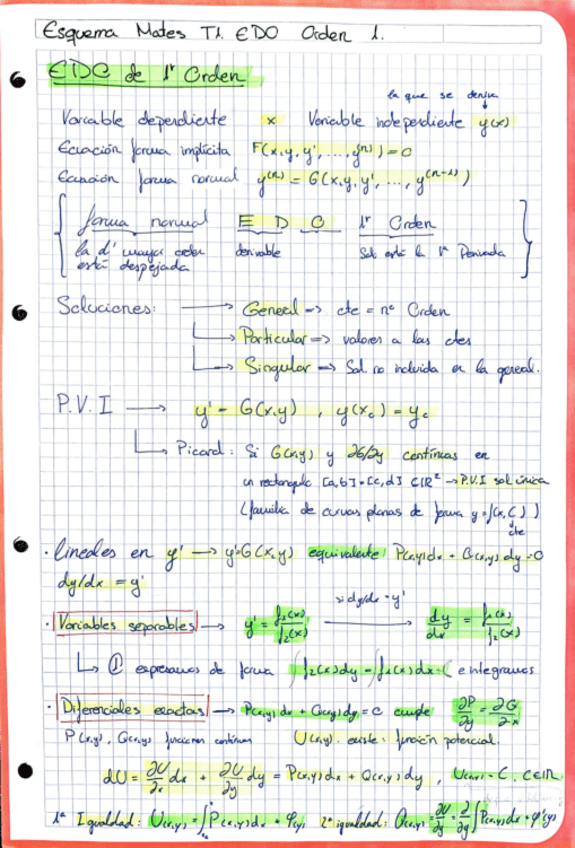 Esquema Mates T1. EDO Orden 1.
EDO de 1r Orden
la que se deriva
Variable dependiente x Variable independiente y(x)
Ecuación forma implícita F(x,y,y',...,y^(n))=0
Ecuación forma normal y^(n) = G(x,y,y',...,y^(n-1))
forma normal E D O 1r Orden
la d' mayor orden derivable Sol está la 1ª Derivada
está despejada
Soluciones: → General => cte = nº Orden
→ Particular => valores a las ctes
→ Singular => Sol no incluida en la general.
P.V.I → y' = G(x,y) , y(x₀) = y₀
→ Picard: Si G(x,y) y ∂G/∂y continuas en
un rectangulo [a,b]×[c,d] ⊂ ℝ² → P.V.I sol única
(familia de curvas planas de forma y=f(x,C))
cte
· lineales en y' → y'=G(x,y) equivalente P(x,y)dx + Q(x,y)dy=0
dy/dx = y'
· Variables separables → y' = f₁(x)/f₂(x) si dy/dx = y' → dy/dx = f₁(x)/f₂(x)
→ ① expresamos de forma ∫f₂(x)dy = ∫f₁(x)dx = C e integramos
· Diferenciales exactas → P(x,y)dx + Q(x,y)dy = C cumple ∂P/∂y = ∂G/∂x
P(x,y), Q(x,y) funciones continuas U(x,y). existe: función potencial.
dU = ∂U/∂x dx + ∂U/∂y dy = P(x,y)dx + Q(x,y)dy , U(x,y) = C, C∈ℝ
1ª Igualdad: U(x,y) = ∫P(x,y)dx + φ(y) 2ª igualdad: Q(x,y) = ∂U/∂y = ∂/∂y ∫P(x,y)dx + φ'(y)